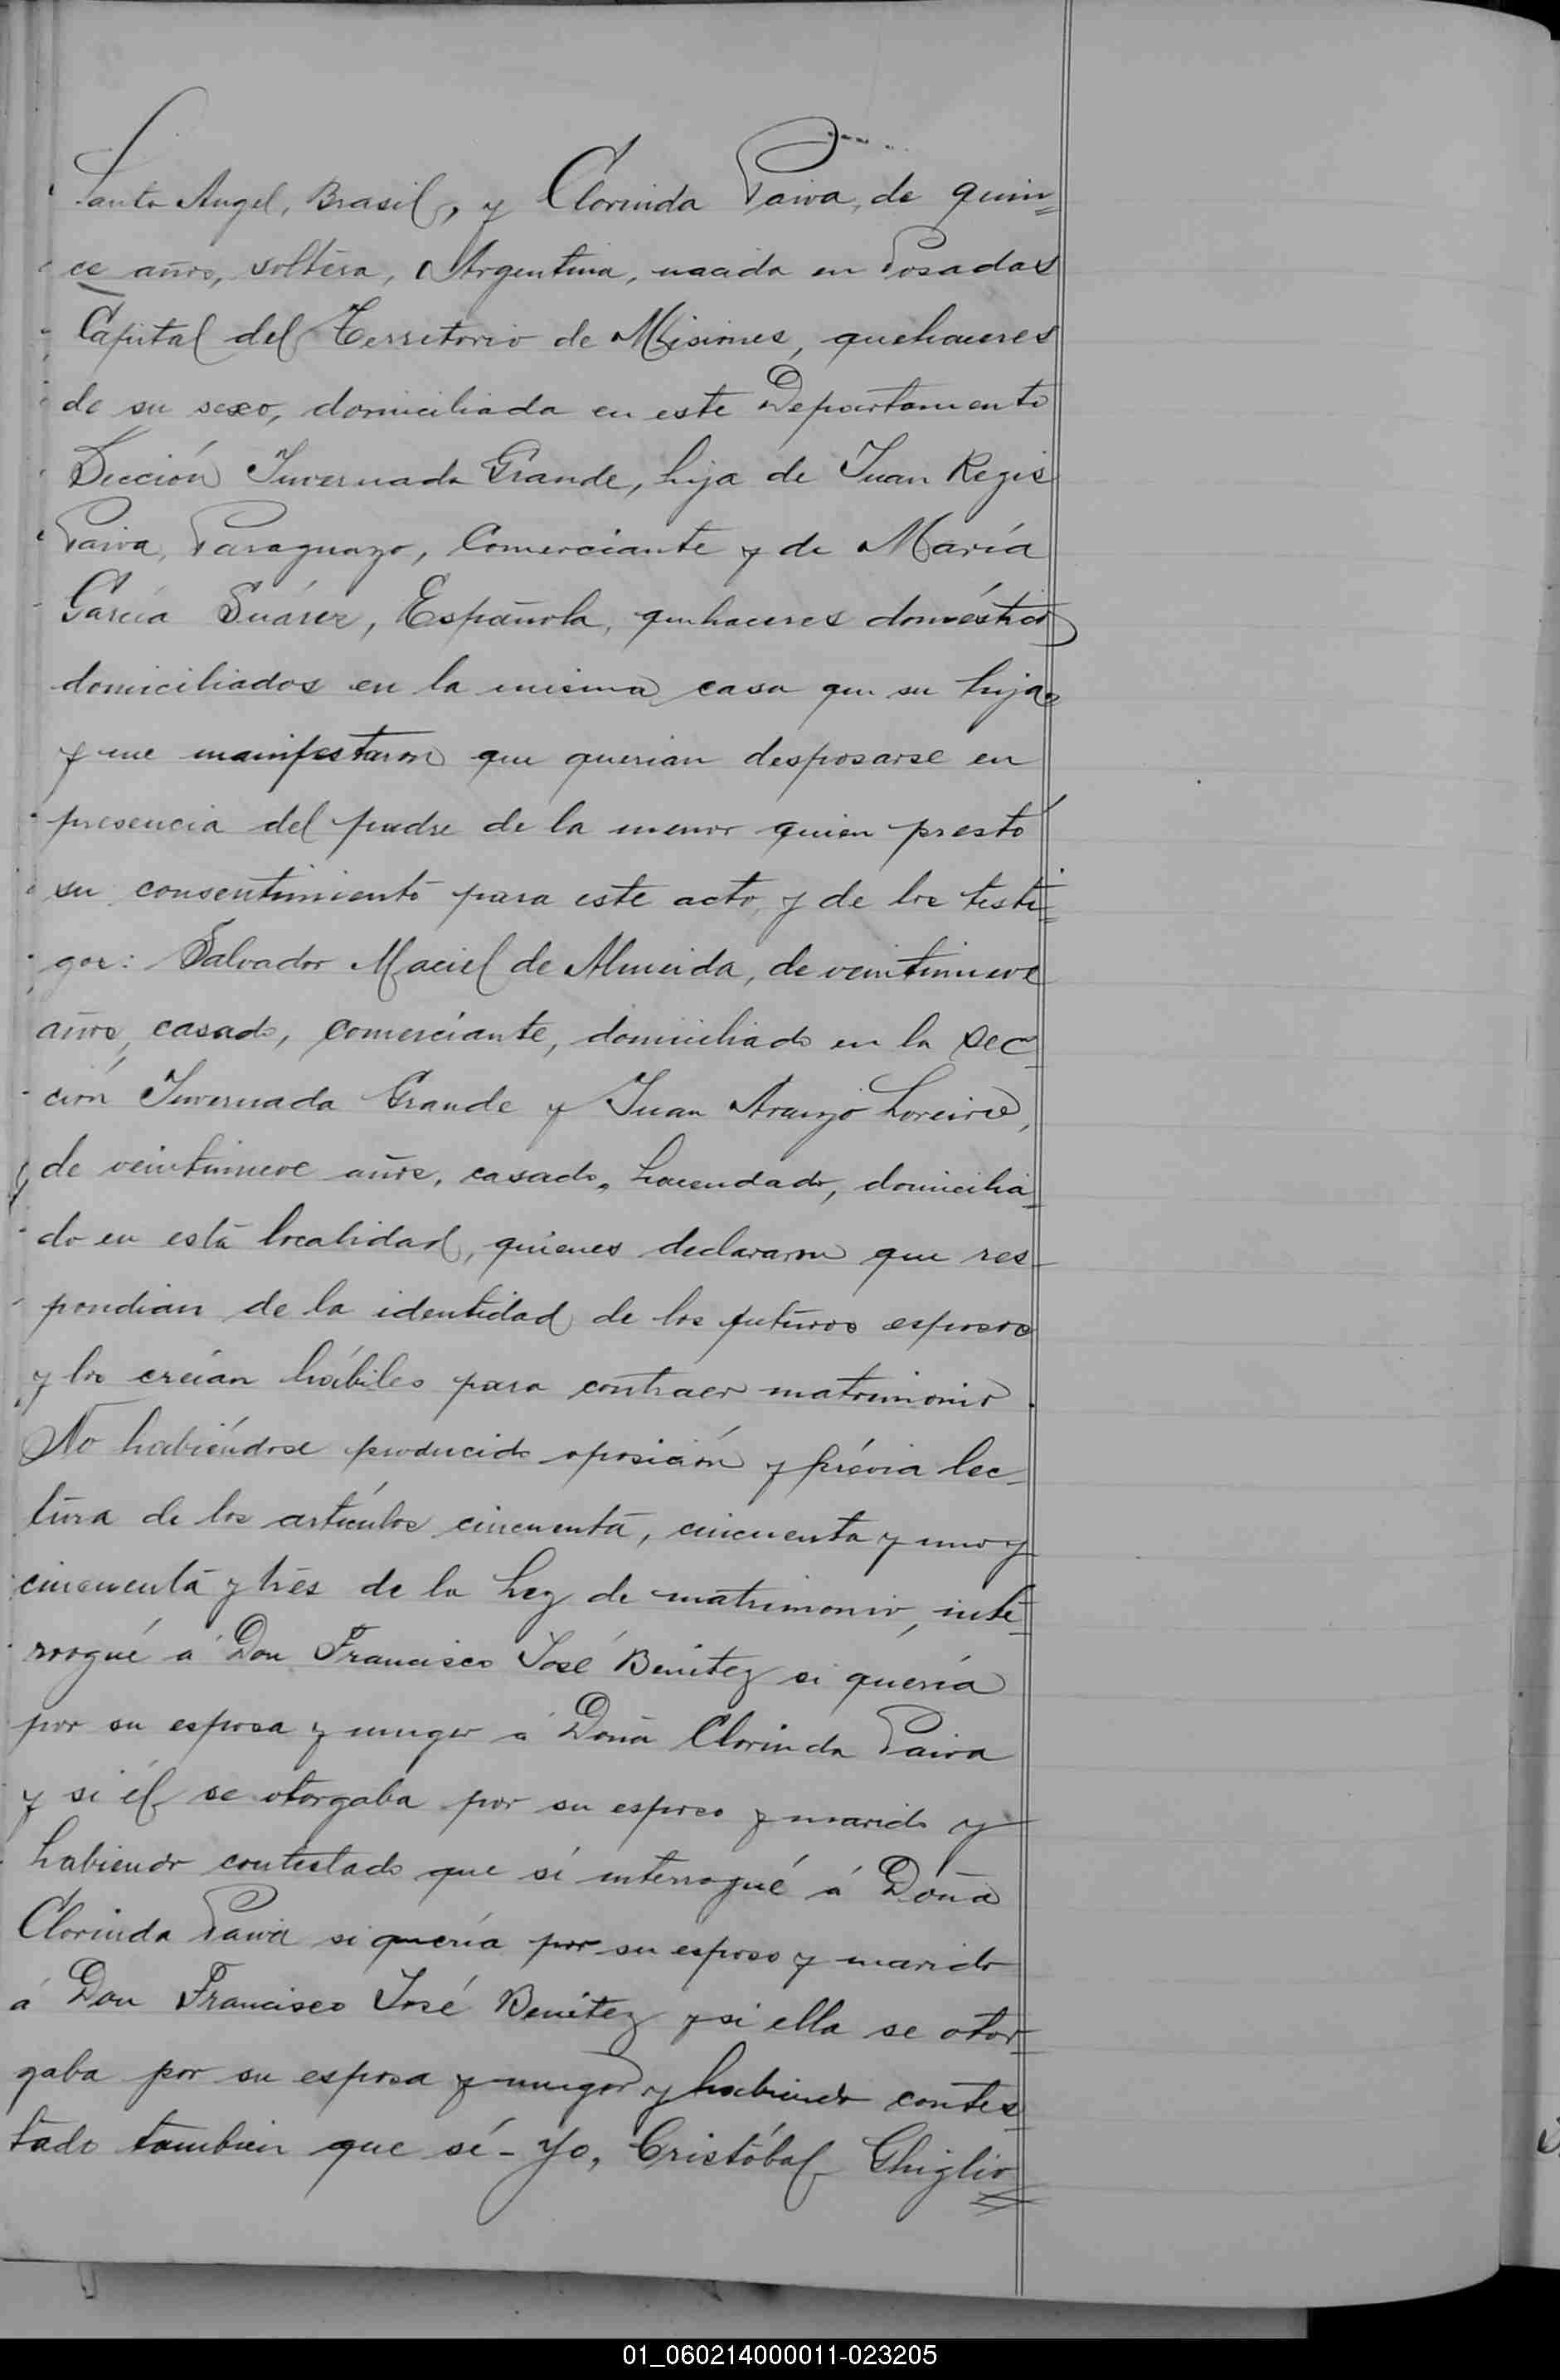 Santo Angel, Brasil, y Clorinda Paiva, de quin=
ce años, soltera, Argentina, nacida en Posadas
Capital del Territorio de Misiones, quehaceres
de su sexo, domiciliada en este Departamento
Sección Invernada Grande, hija de Juan Regis
Paiva, Paraguayo, Comerciante y de María
García Suárez, Española, quehaceres domésticos
domiciliados en la misma casa que su hija
y me manifestaron que querian desposarse en
presencia del padre de la menor quien prestó
su consentimiento para este acto, y de los testi=
gos: Salvador Maciel de Almeida, de veintinueve
años, casado, comerciante, domiciliado en la sec
ción Invernada Grande y Juan Araujo Loreiro,
de veintinueve años, casado, hacendado, domicilia=
do en esta localidad, quienes declararon que res-
pondian de la identidad de los futuros esposos
y los creían hábiles para contraer matrimonio.
No habiéndose producido oposición y prévia lec-
tura de los artículos cincuenta, cincuenta y uno y
cincuenta y tres de la Ley de matrimonio, inte-
rrogué á Don Francisco José Benitez si quería
por su esposa y muger á Doña Clorinda Paiva
y si él se otorgaba por su esposo y marido y
habiendo contestado que sí interrogué á Doña
Clorinda Paiva si quería por su esposo y marido
á Don Francisco José Benitez y si ella se otor-
gaba por su esposa y muger y habiendo contes-
tado tambien que sí - Yo, Cristóbal Ghiglio
01_060214000011-023205